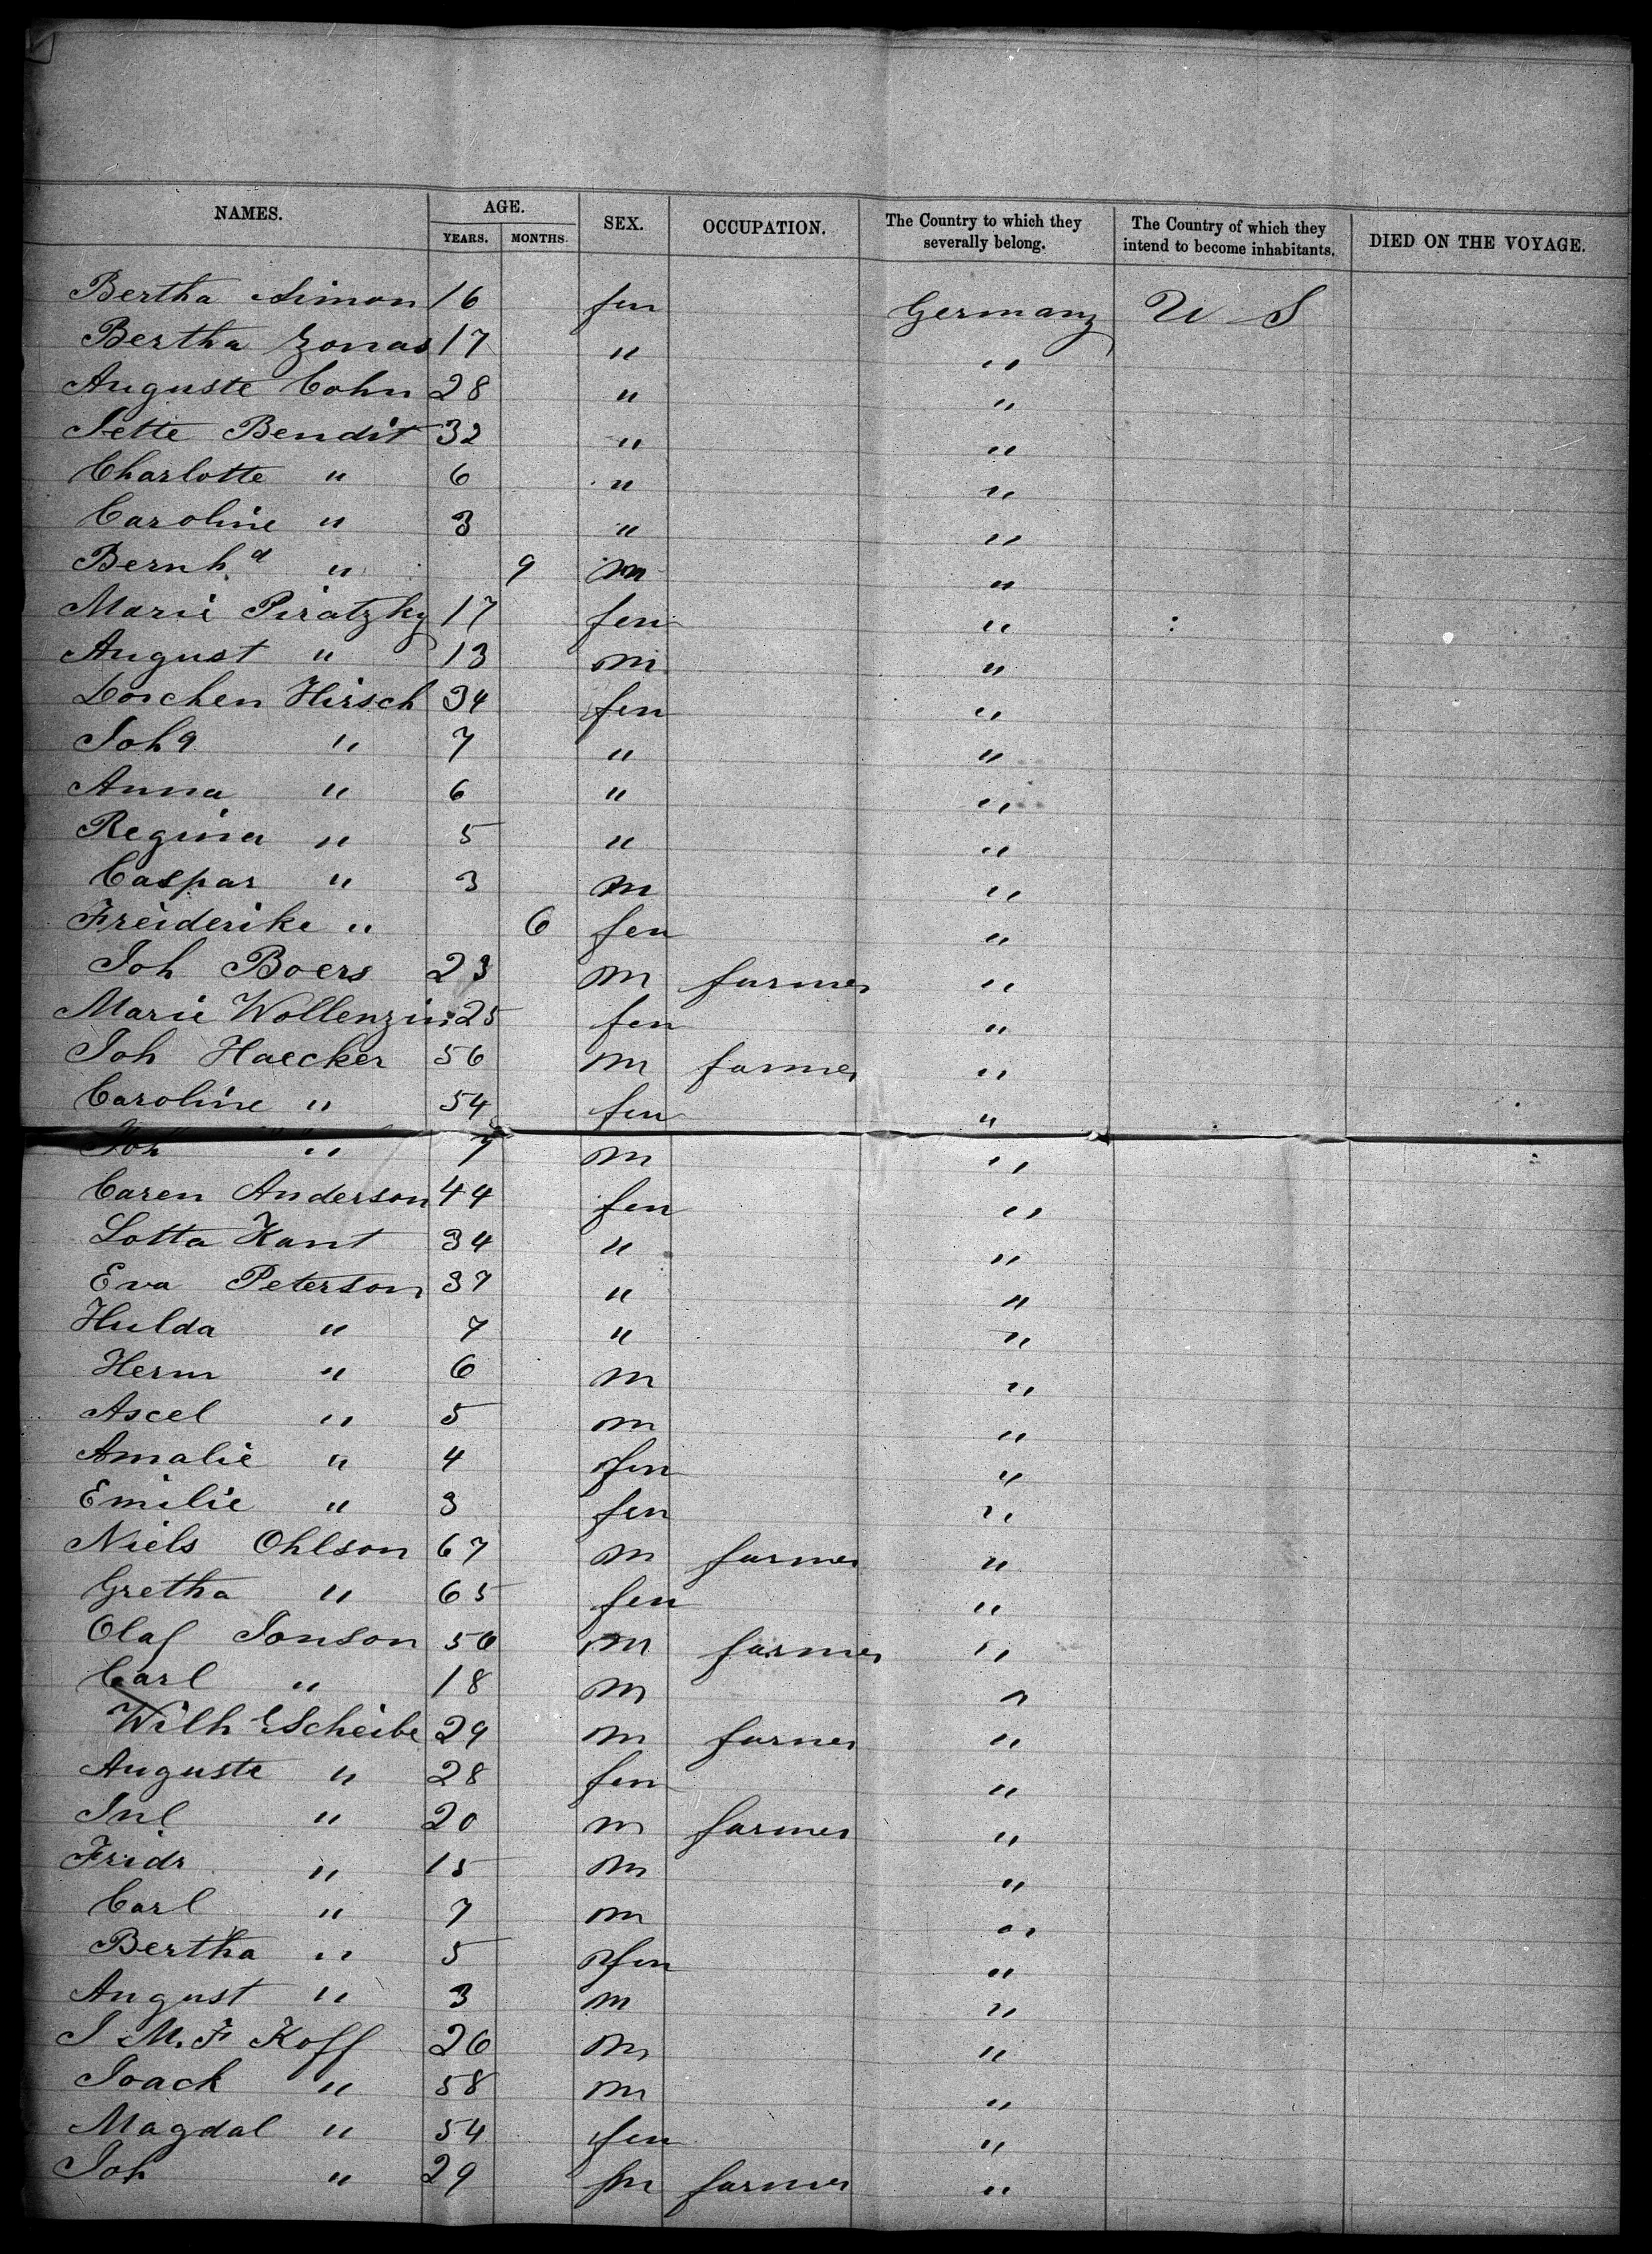 NAMES. AGE. SEX. OCCUPATION. The Country to which they severally belong. The Country of which they intend to become inhabitants. DIED ON THE VOYAGE.
YEARS. MONTHS.
Bertha Simon 16 fem Germany U S
Bertha Zonas 17 " "
Auguste Cohn 28 " "
Jette Bendit 32 " "
Charlotte " 6 " "
Caroline " 3 " "
Bernhd " 9 m "
Marie Piratzky 17 fem "
August " 13 m "
Dorchen Hirsch 34 fem "
Joha " 7 " "
Anna " 6 " "
Regina " 5 " "
Caspar " 3 m "
Freiderike " 6 fem "
Joh Boers 23 m farmer "
Marie Wollenzin 25 fem "
Joh Haecker 56 m farmer "
Caroline " 54 fem "
Joh " 7 m "
Caren Anderson 44 fem "
Lotta Kant 34 " "
Eva Peterson 37 " "
Hulda " 7 " "
Herm " 6 m "
Ascel " 5 m "
Amalie " 4 fem "
Emilie " 3 fem "
Niels Ohlson 67 m farmer "
Gretha " 65 fem "
Olaf Jonson 56 m farmer "
Carl " 18 m "
Wilh Scheibe 29 m farmer "
Auguste " 28 fem "
Jul " 20 m farmer "
Fridr " 15 m "
Carl " 7 m "
Bertha " 5 fem "
August " 3 m "
J M. F Koff 26 m "
Joach " 58 m "
Magdal " 54 fem "
Joh " 29 m farmer "